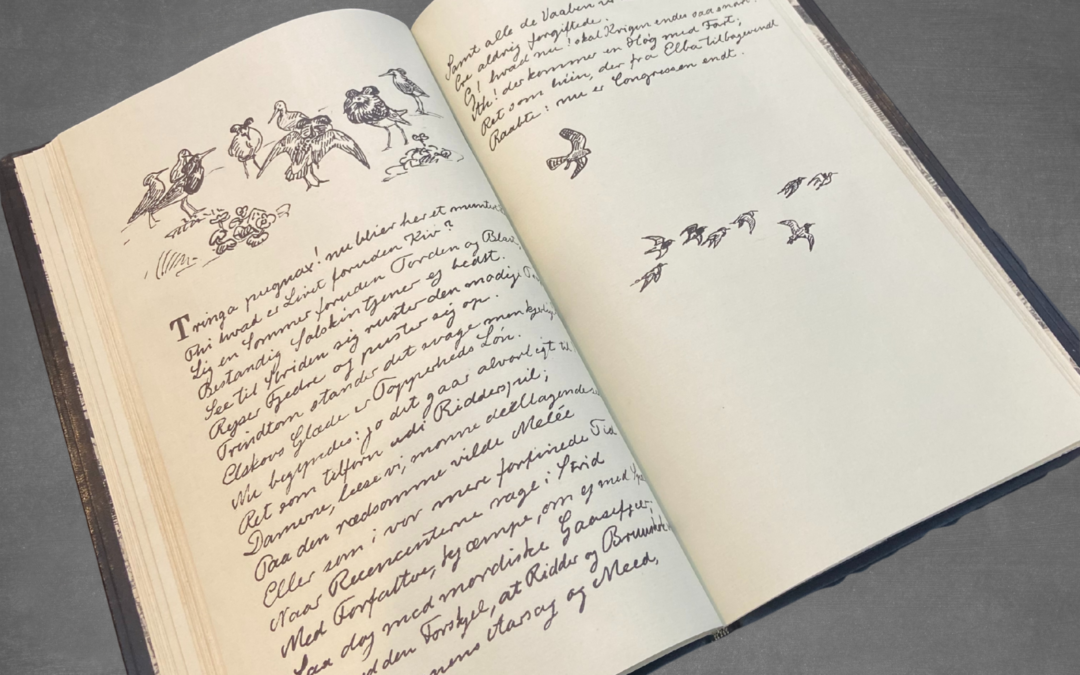 Tringa pugnax! nu bliver her et munter
Thi hvad er Livet foruden Kiv?
Lig en Sommer foruden Torden og Blæst
Bestandig Solskin tjener ej bedst.
See til Striden sig ruster den modige
Rejser Fjedre og puster sig op.
Trindtom stander det svage men
Elskovs Glæde er Tapperheds Løn.
Nu begyndes: jo det gaar alvorligt til
Ret som tilforn udi Ridderspil;
Damerne, læse vi, monne deeltagende
Paa den rædsomme vilde Melée
Eller som i vor mere forfinede Tid
Naar Recencenterne rage i Strid
Med Forfattre, kjæmpe, om ej med
Saa dog med mordiske Gaasefjer;
den Forskjel, at Ridder og
Aarsag og Meed,
Samt alle de Vaaben
Ere aldrig forgiftede.
O! hvad nu! skal Krigen endes saa snart
Ah! der kommer en Høg med Fart;
Ret som hiin, der fra Elba tilbagevendt
Raabte: nu er Congressen endt.